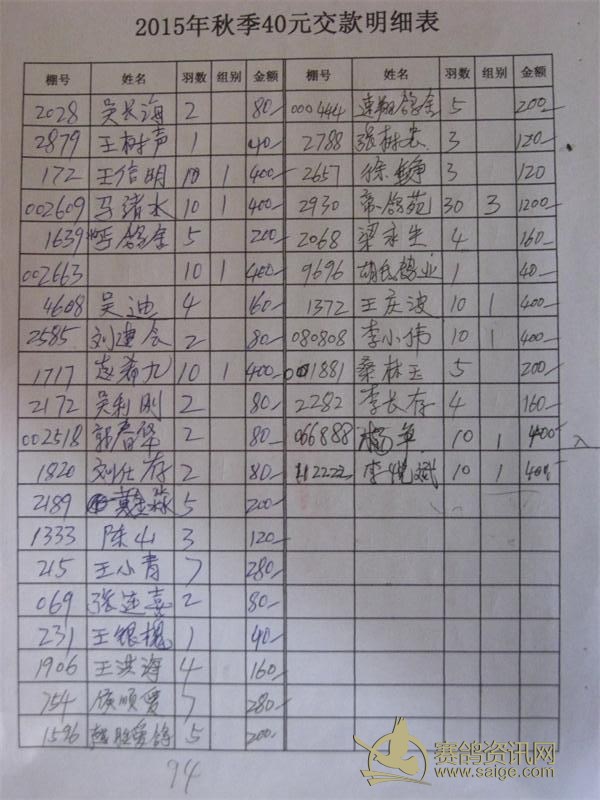 2015年秋季40元交款明细表
棚号 姓名 羽数 组别 金额 棚号 姓名 羽数 组别 金额
2028 吴长海 2 80- 000444 连翔鸽舍 5 200-
2879 王树声 1 40- 2788 张树 3 120-
172 王信明 10 1 400- 2657 徐 3 120
002609 马清水 10 1 400- 2930 帝鸽苑 30 3 1200-
1639 鸽舍 5 200- 2068 梁永生 4 160-
002663 10 1 400- 9696 胡氏鸽业 1 40-
4608 吴迪 4 160- 1372 王庆波 10 1 400-
2585 刘建会 2 80- 080808 李小伟 10 1 400-
1717 九 10 1 400- 001881 桑林玉 5 200-
2172 吴利刚 2 80- 2282 李长存 4 160-
002518 郭春华 2 80- 066888 杨军 10 1 400-
1820 刘仕存 2 80- 112222 李悦斌 10 1 400-
2189 5 200-
1333 陈山 3 120-
215 王小青 7 280-
069 张连喜 2 80-
231 王银槐 1 40-
1906 王洪海 4 160
754 顺 7 280-
1596 5 200-
94
赛鸽资讯网
www.saige.com